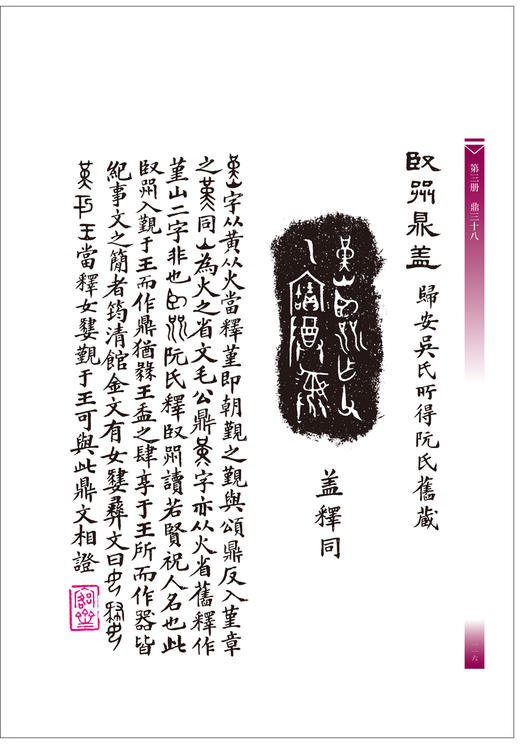 第三册 鼎三十八
臤喌鼎盖
歸安吳氏所得阮氏舊藏
盖釋同
字从黄从火當釋堇即朝覲之覲與頌鼎反入堇章
之同山為火之省文毛公鼎字亦从火省舊釋作
堇山二字非也阮氏釋臤喌讀若賢祝人名也此
臤喌入覲于王而作鼎猶王盉之肆享于王所而作器皆
紀事文之簡者筠清館金文有女彝文曰
王當釋女覲于王可與此鼎文相證